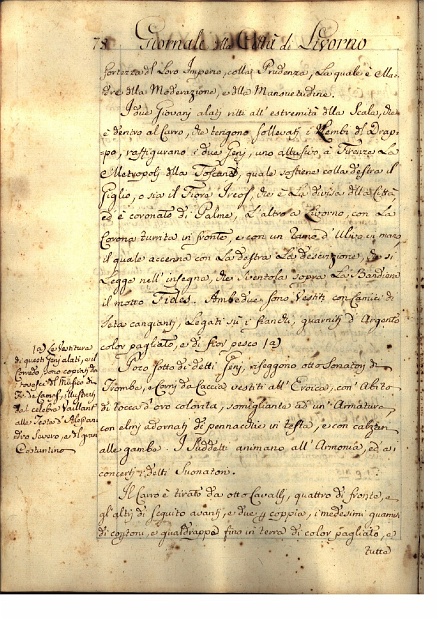 78 Giornale della Città di Livorno
fortezza del Loro Imperio, colla Prudenza, La quale è Ma-
dre della Moderazione, e della Mansuetudine.
I due Giovani alati ritti all'estremità della Scala, che
è dentro al Carro, che tengono sollevati i Lembi del Drap-
po, raffigurano i due Genj, uno allusivo, a Firenze La
Metropoli della Toscana, quale sostiene colla destra il
Giglio, o sia il Fiore Ireos, che è La divisa della Città
ed è coronato di Palme, L'altro a Livorno, con La
Corona turrita in fronte, e con un ramo d'Ulivo in mano
il quale accenna con La destra La descrizione, che si
Legge nell'insegna, che sventola sopra La Bandiera
il motto Fides. Ambedue sono Vestiti con Camici di
Seta cangianti, Legati su i fianchi, guarniti d'Argento
color pagliato, e di fior pesco (a)
Poco sotto di detti Genj, risseggono otto Sonatori di
Trombe, e Corni da Caccia vestiti all'Eroica, con Abito
di tocca d'oro colorita, somigliante ad un'Armatura
con elmi adornati di pennacchi in testa, e con calzari
alle gambe. I Suddetti animano all'Armonia, ed ai
concerti i detti Suonatori.
Il Carro è tirato da otto Cavalli, quattro di fronte, e
gl'altri di seguito avanti, e due per coppia, i medesimi
di coptoni, e gualdrappa fino in terra di color pagliato, e
tutta
(a) La Vestitura
di questi Genj alati, e il
Corredo sono copiati da
del Museo di
illustrati
dal celebre Vaillant
alle Teste d'Alessan-
dro Severo, e del gran
Costantino